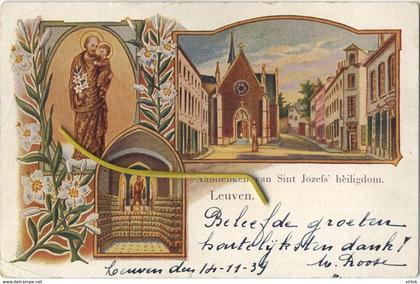 Aandenken van Sint Jozefs' heiligdom.
Leuven.
Beleefde groeten
hartelijksten dank!
Leuven den 14-11-39
M. Roose